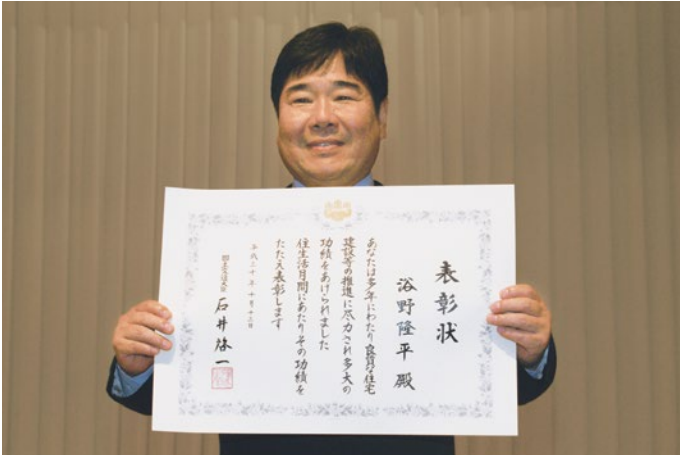 表彰状
浴野隆平 殿
あなたは多年にわたり良質な住宅
建設等の推進に尽力され多大の
功績をあげられました
住生活月間にあたりその功績を
たたえ表彰します
平成三十年十月十三日
国土交通大臣 石井啓一